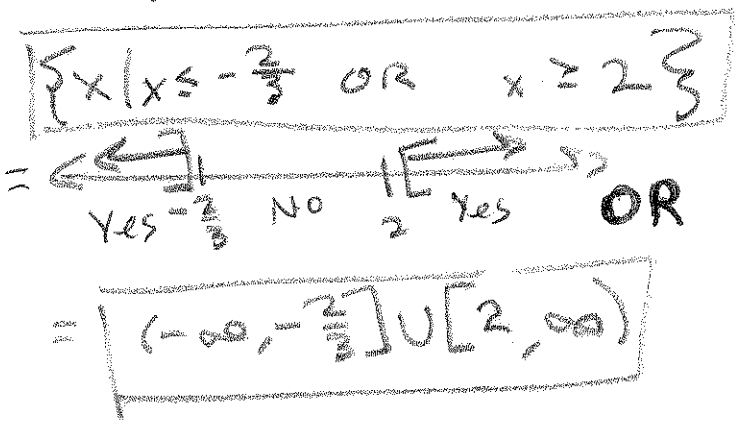 {x | x ≤ -2/3 OR x ≥ 2}
=
Yes -2/3 NO 2 Yes OR
= (-∞, -2/3] ∪ [2, ∞)